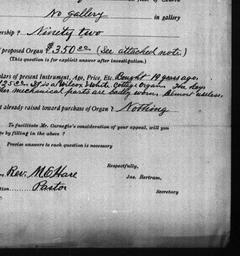 No gallery in gallery
ership? Ninety two
proposed Organ $350.00 (See attached note)
(This question is for explicit answer after investigation.)
ulars of present Instrument, Age, Price, Etc. Bought 19 years ago,
Wilcox White Cottage Organ. The keys
mechanical parts are badly worn. Almost useless.
nt already raised toward purchase of Organ? Nothing
To facilitate Mr. Carnegie's consideration of your appeal, will you
by filling in the above?
Precise answers to each question is necessary
Respectfully,
Rev. Jas. Bertram,
Pastor Secretary